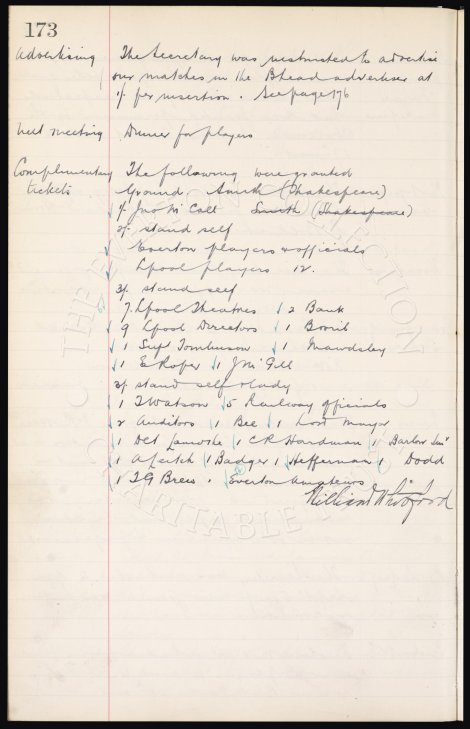 173
Advertising The Secretary was instructed to advertise
our matches in the B'head advertiser at
1/- per insertion. See page 176
next meeting Dinner for players
Complimentary The following were granted
tickets Ground Smith (Shakespeare)
1/- Jno McCall Smith (Shakespeare)
2/- stand self
Everton players & officials
Lpool players 12.
3/- stand self
7 Lpool Theatres 2 Bank
9 Lpool Directors 1
1 Supt Tomlinson 1 Mawdsley
1 E Roper 1 J McGill
3/- stand self & lady
1 T Watson 5 Railway officials
2 Auditors 1 Bee 1 Lord Mayor
1 Det 1 C R Hardman 1 Barlow Junr
1 A Leitch 1 Badger 1 Heffernan 1 Dodd
1 T G Brew. Everton Amateurs
William Whitford
THE EVERTON COLLECTION
CHARITABLE